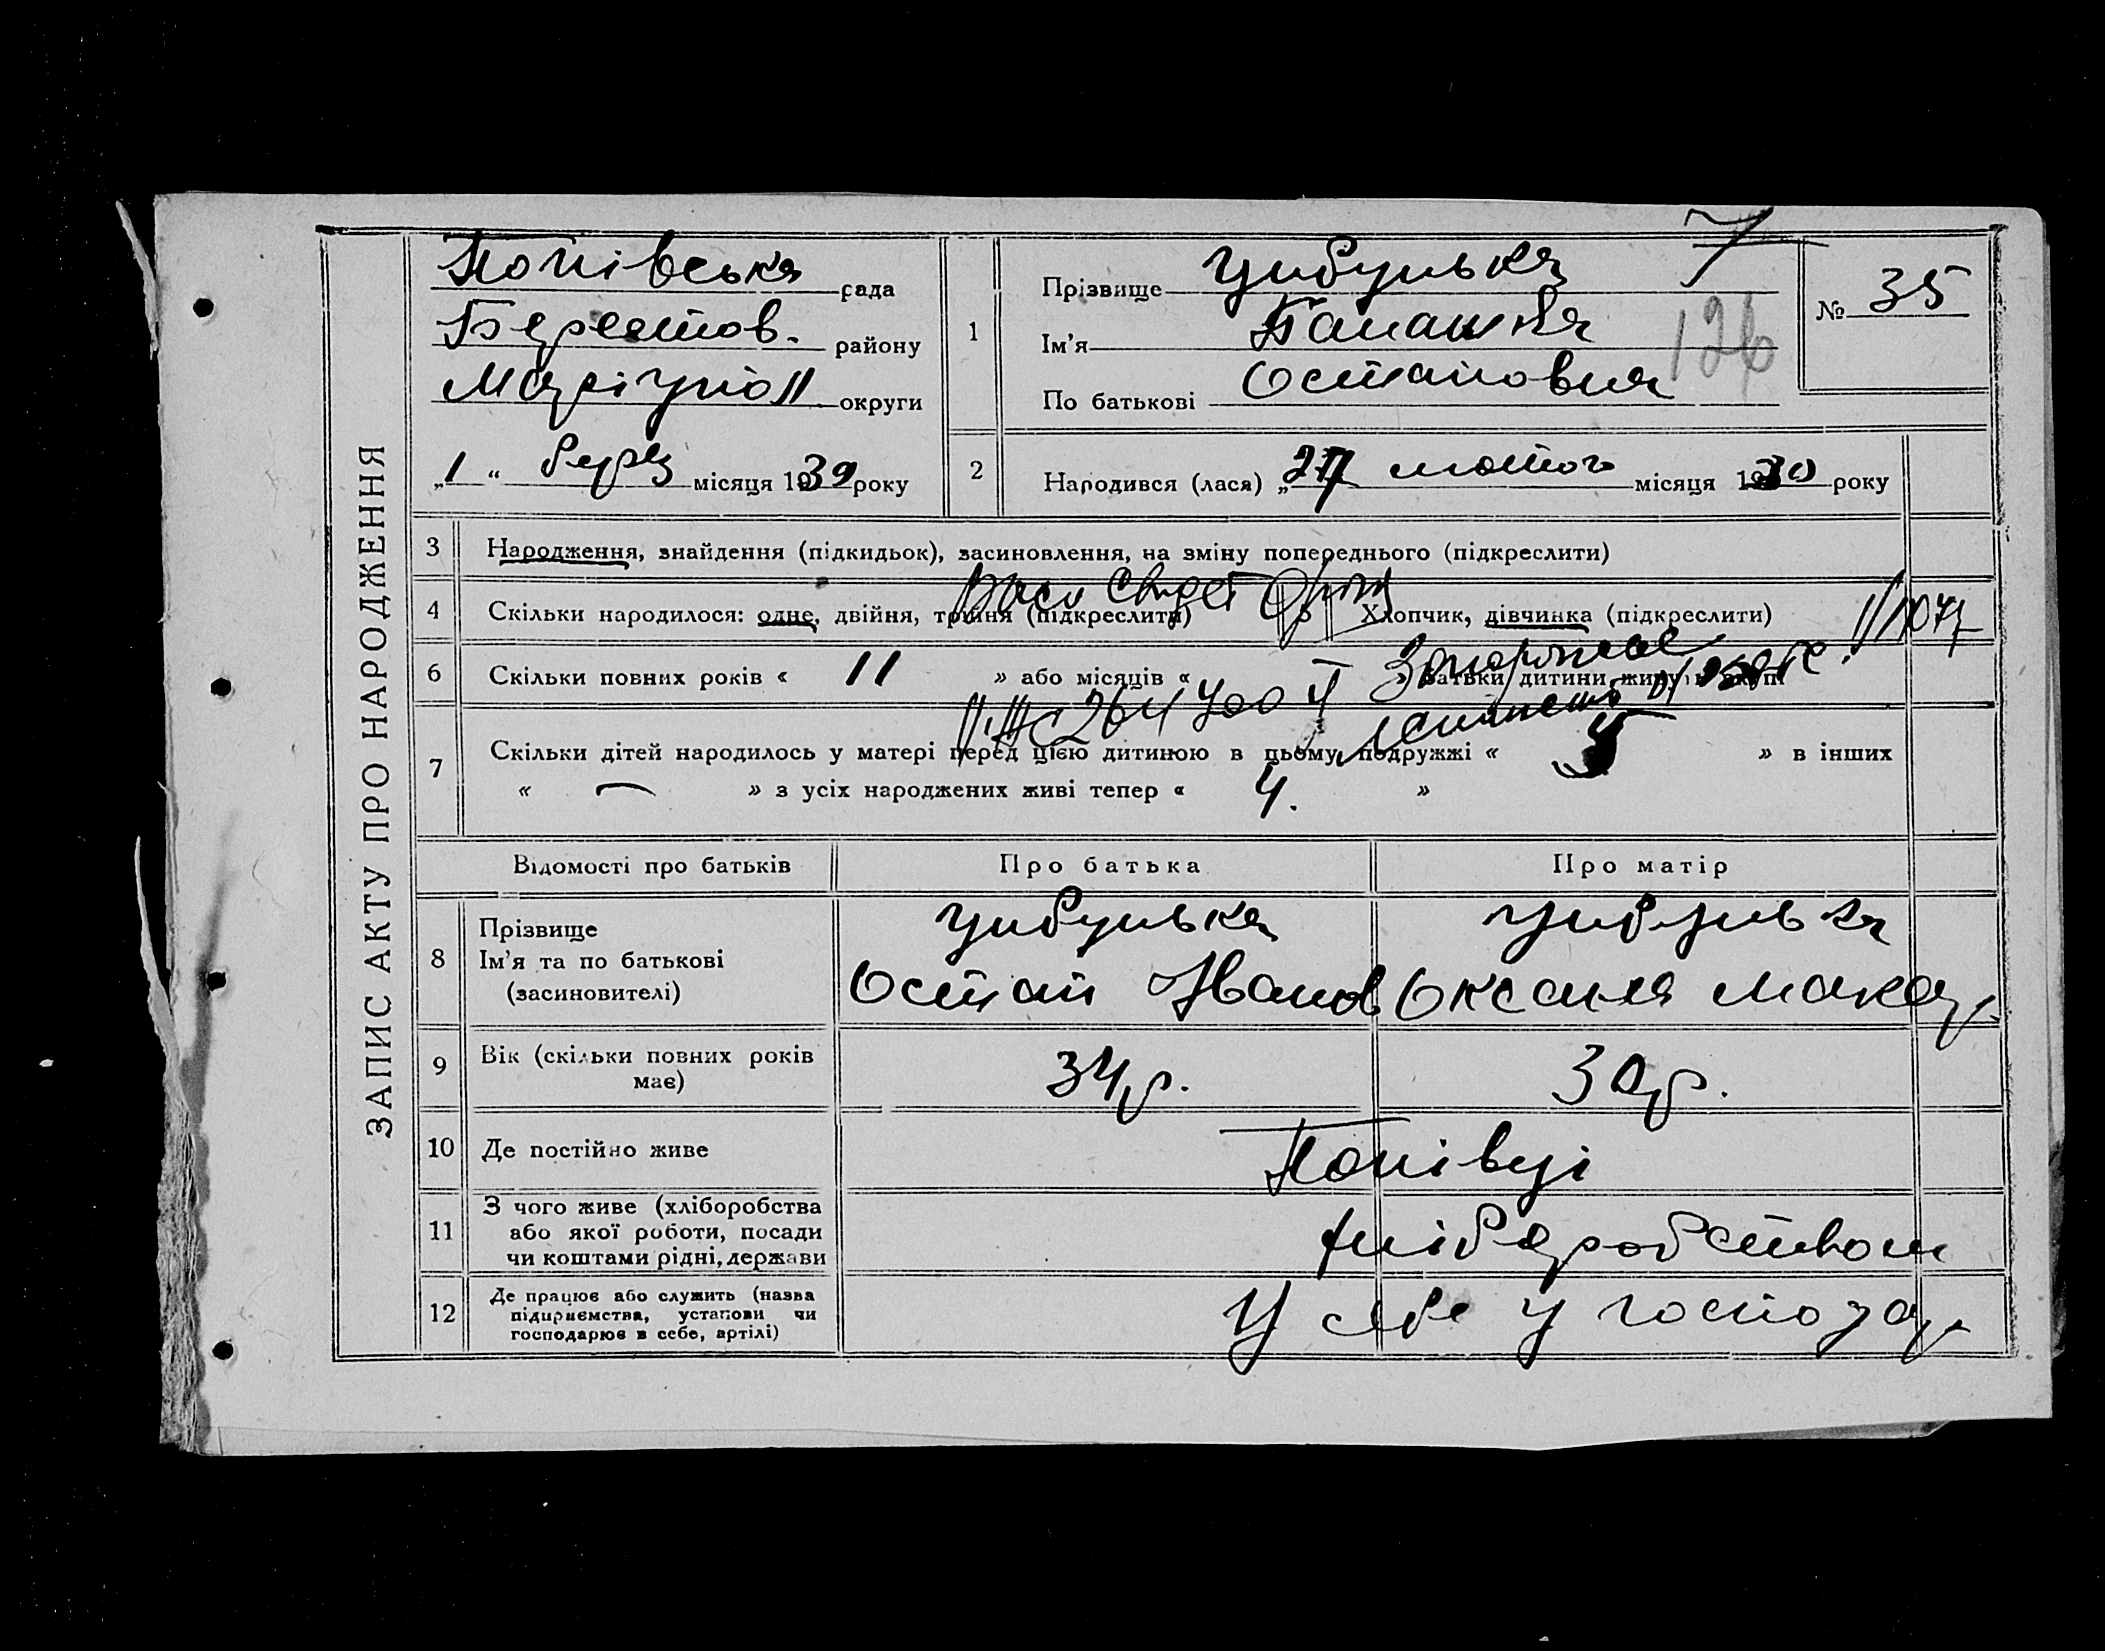 ЗАПИС АКТУ ПРО НАРОДЖЕННЯ
Попівська рада
Берестов. району
Маріупіл округи
„1“ берез місяця 1930 року
1
Прізвище Цибулька
Ім’я Палажка
По батькові Остаповна
7
126
№ 35
2
Народився (лася) „27 лютого місяця 1930 року
3 Народження, знайдення (підкидьок), засиновлення, на зміну попереднього (підкреслити)
4 Скільки народилося: одне, двійня, трійня (підкреслити) 5 Хлопчик, дівчинка (підкреслити)
6 Скільки повних років « 11 » або місяців « » батьки дитини живуть вкупі
7 Скільки дітей народилось у матері перед цією дитиною в цьому подружжі « » в інших
« — » з усіх народжених живі тепер « 4. »
Відомості про батьків Про батька Про матір
8 Прізвище
Ім’я та по батькові
(засиновителі)
Цибулька
Остап Іванов
Цибулька
Оксана Макар.
9 Вік (скільки повних років
має)
34 р. 30 р.
10 Де постійно живе Попівці
11 З чого живе (хліборобства
або якої роботи, посади
чи коштами рідні, держави
хліборобством
12 Де працює або служить (назва
підприємства, установи чи
господарює в себе, артілі)
У себе у господар